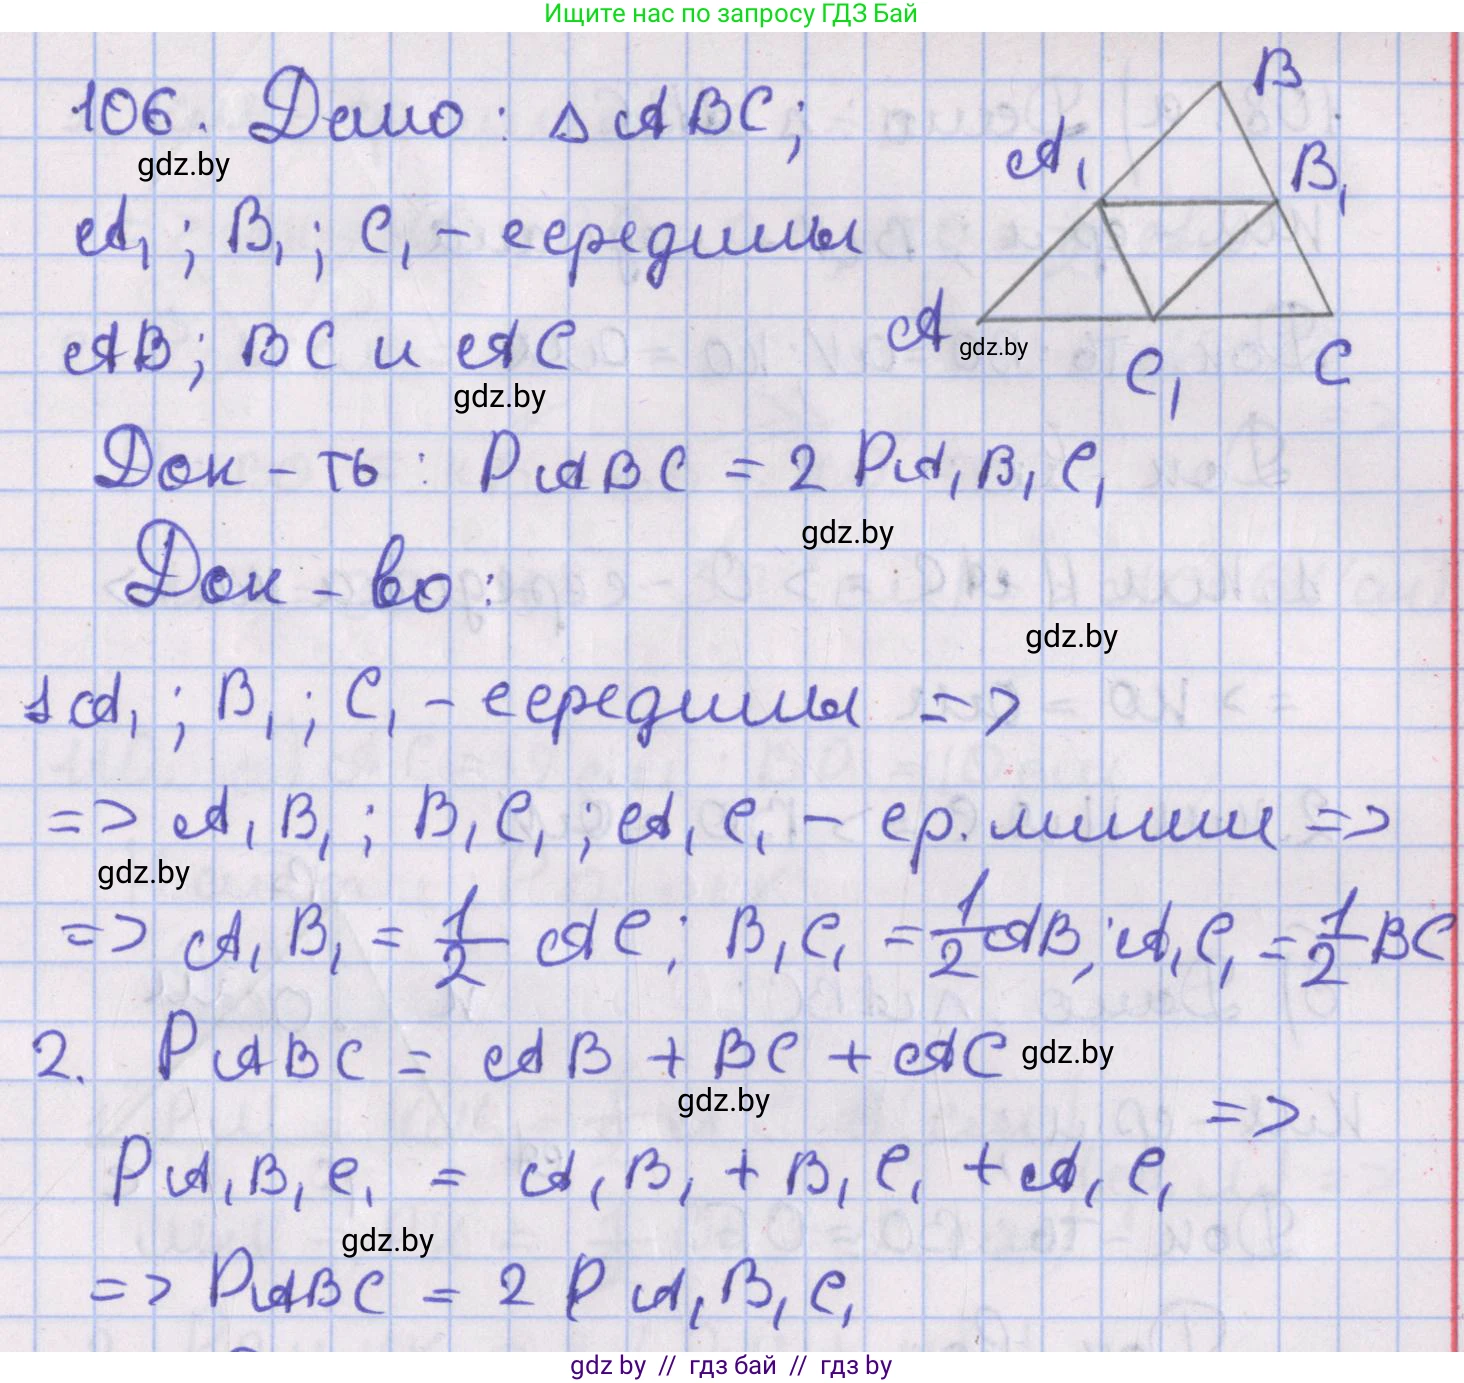 Ищите нас по запросу ГДЗ Бай
106. Дано: △ABC;
gdz.by
A₁; B₁; C₁ - середины
AB; BC и AC
gdz.by
B
A₁
B₁
A
gdz.by
C₁
C
Док-ть: PABC = 2 PA₁B₁C₁
gdz.by
Док-во:
gdz.by
1 A₁; B₁; C₁ - середины =>
=> A₁B₁; B₁C₁; A₁C₁ - ср. линии =>
gdz.by
=> A₁B₁ = 1/2 AC; B₁C₁ = 1/2 AB; A₁C₁ = 1/2 BC
2. PABC = AB + BC + AC gdz.by
gdz.by
=>
PA₁B₁C₁ = A₁B₁ + B₁C₁ + A₁C₁
gdz.by
=> PABC = 2 PA₁B₁C₁
gdz by // гдз бай // гдз by